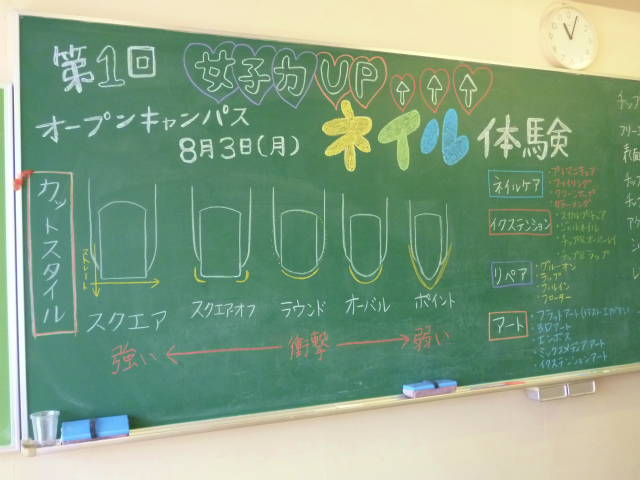 第1回 女子力UP↑↑↑
オープンキャンパス
8月3日(月)
ネイル体験
カットスタイル
ストレート
スクエア
スクエアオフ
ラウンド
オーバル
ポイント
強い ← 衝撃 → 弱い
ネイルケア
・プレマニキュア
・ファイリング
・カラーリング
イクステンション
・スカルプチュア
・ジェルネイル
・チップ&オーバーレイ
・チップ&ラップ
リペア
・グルーオン
・ラップ
・フィルイン
・フローター
アート
・フラットアート
・3Dアート
・エンボス
・ミックスメディアアート
・イクステンションアート
チップ
フリー
表面
チッ
チッ
アク